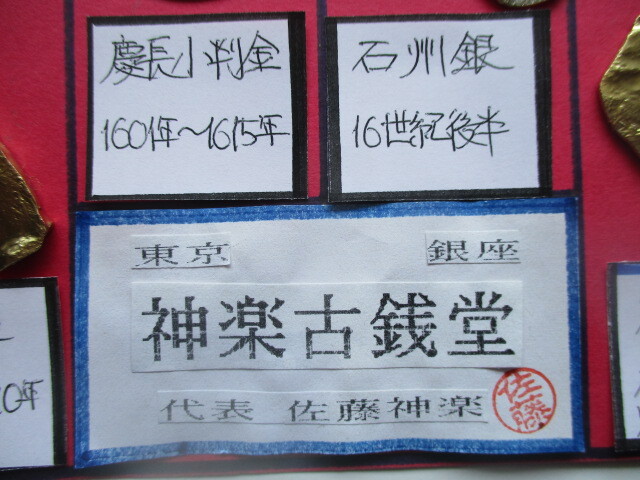 慶長小判金
1601年～1615年
石州銀
16世紀後半
東京 銀座
神楽古銭堂
代表 佐藤神楽
佐藤
0年